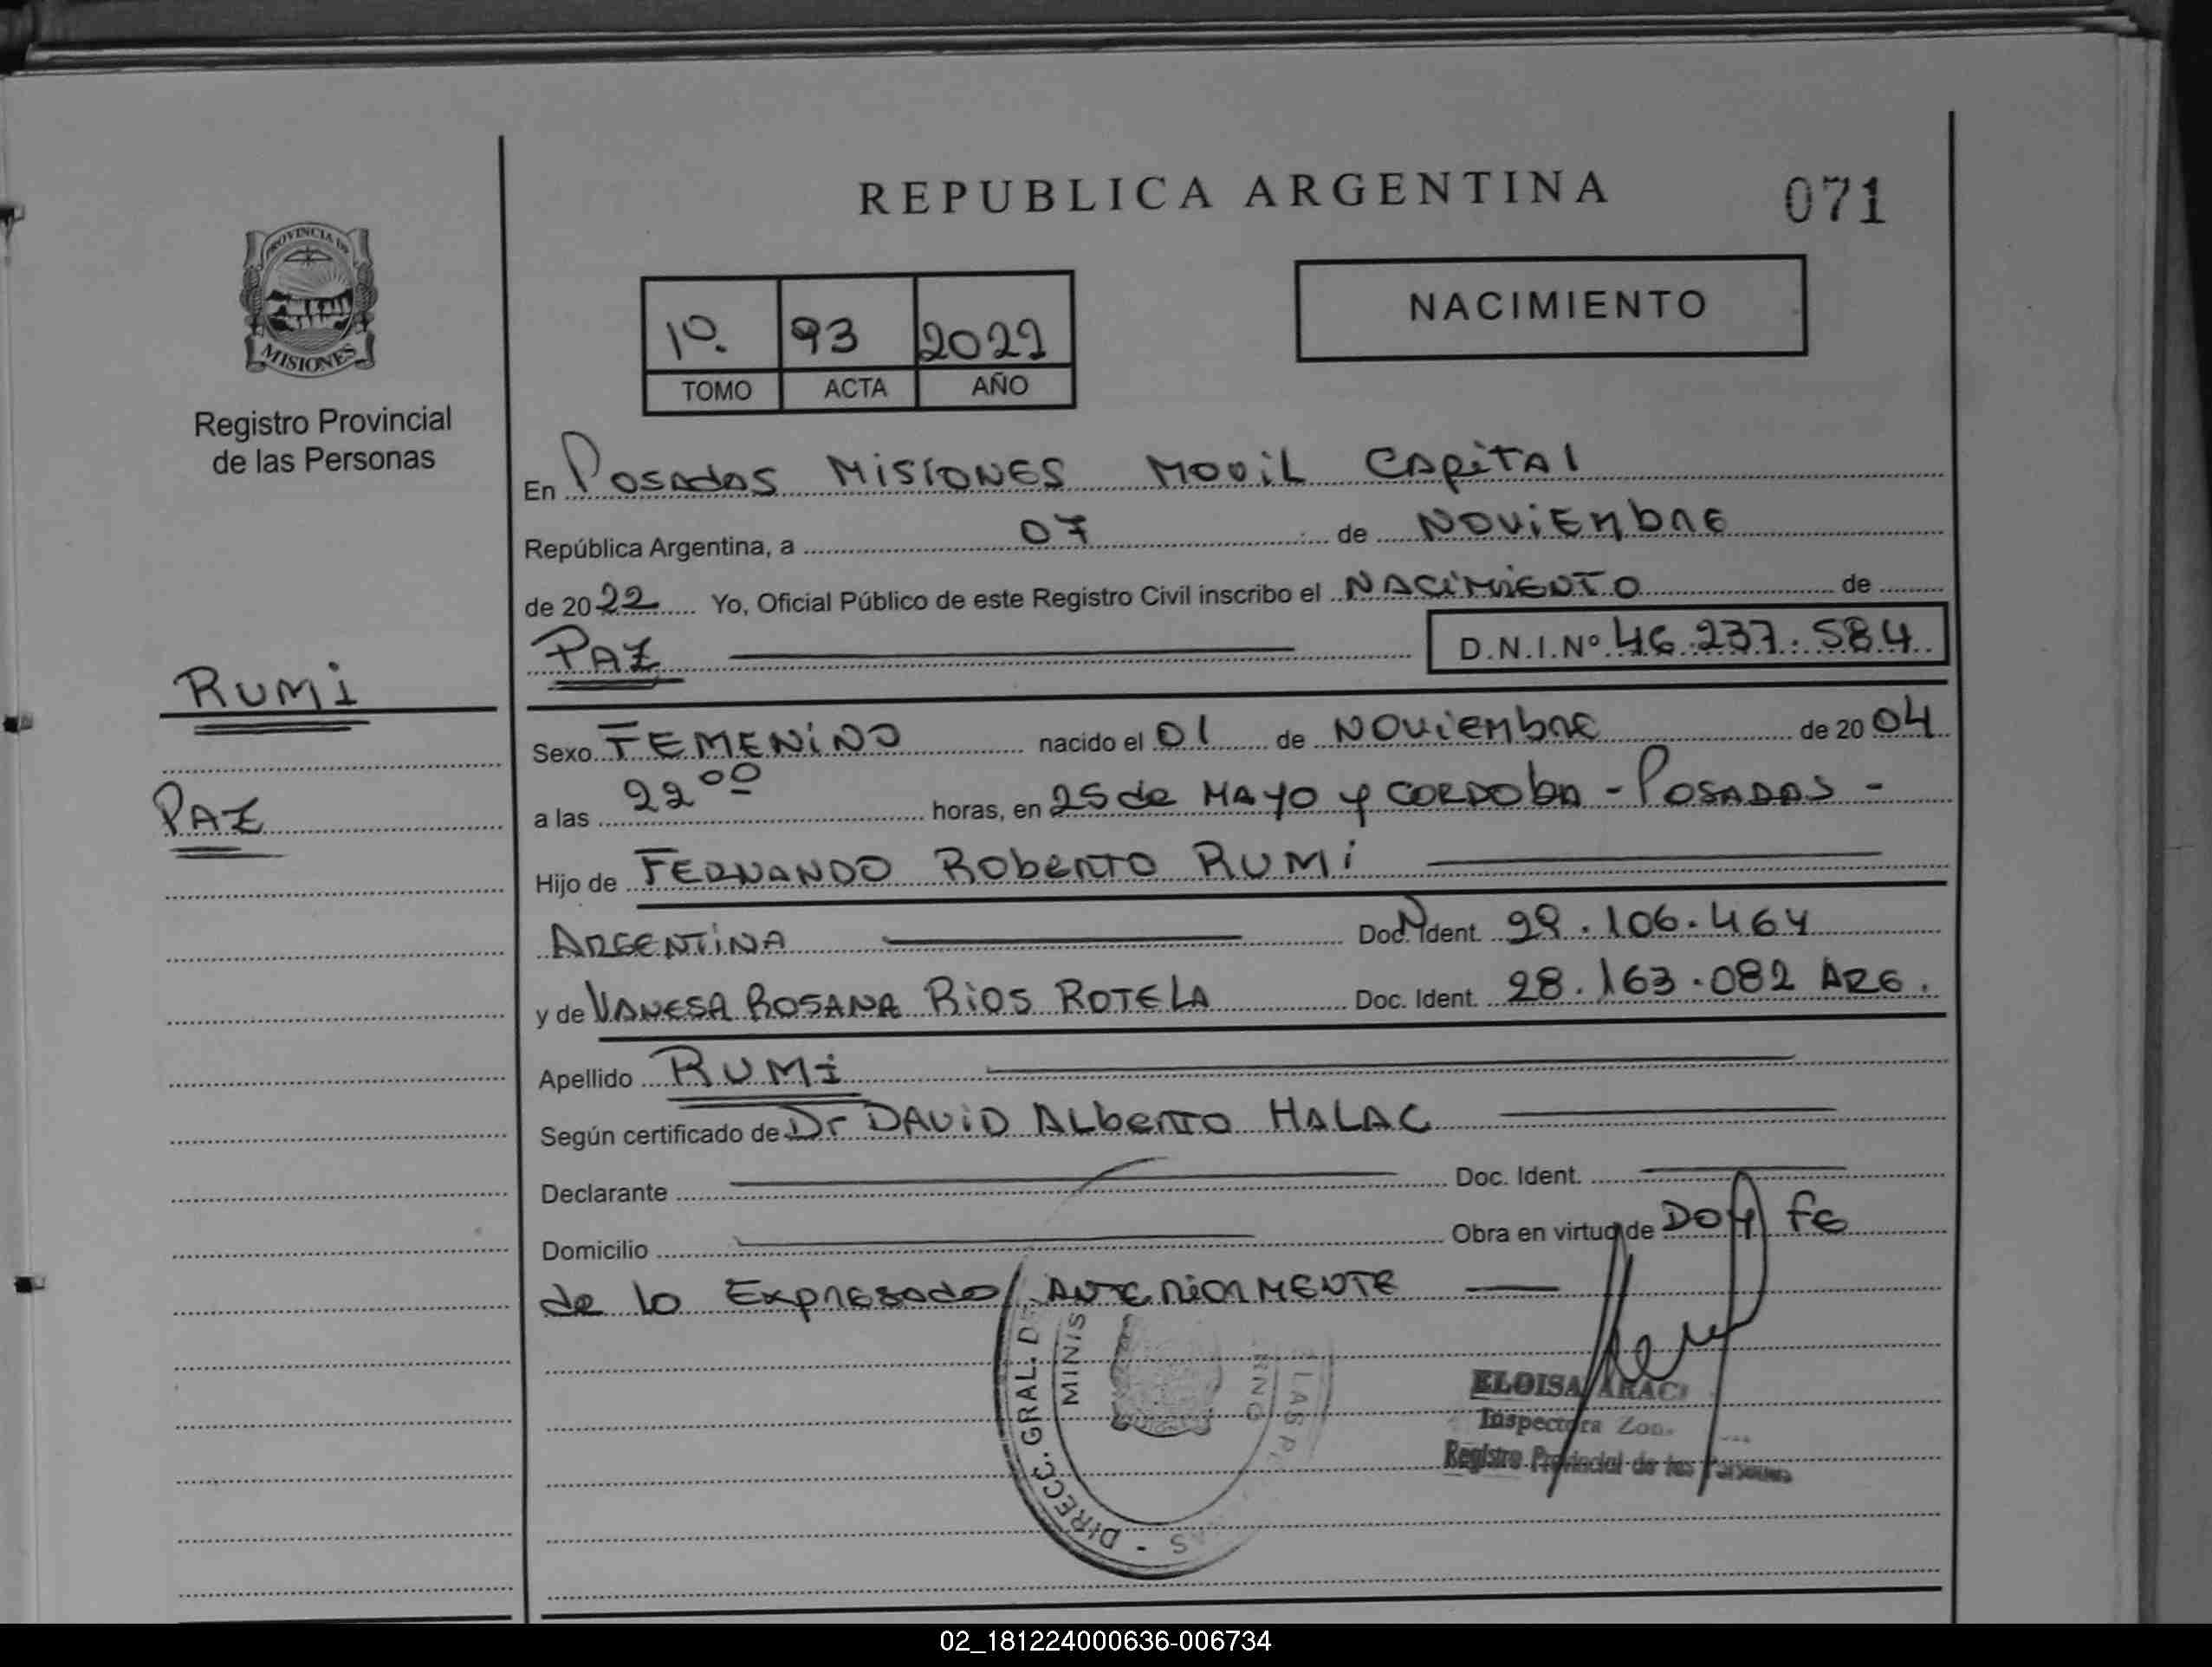 REPUBLICA ARGENTINA
071
PROVINCIA DE
MISIONES
Registro Provincial
de las Personas
1º. 93 2022
TOMO ACTA AÑO
NACIMIENTO
En Posadas Misiones Movil Capital
República Argentina, a 07 de Noviembre
de 2022 Yo, Oficial Público de este Registro Civil inscribo el NACIMIENTO de
PAZ D.N.I.Nº 46.237.584
RUMI
PAZ
Sexo FEMENINO nacido el 01 de Noviembre de 2004
a las 22 00 horas, en 25 de MAYO y CORDOBA - POSADAS -
Hijo de FERNANDO ROBERTO RUMI
ARGENTINA Doc. Ident. 29.106.464
y de VANESA ROSANA RIOS ROTELA Doc. Ident. 28.163.082 ARG.
Apellido RUMI
Según certificado de Dr DAVID ALBERTO HALAC
Declarante Doc. Ident.
Domicilio Obra en virtud de DOY fe
de lo Expresado ANTERIORMENTE
DIRECC. GRAL. D
MINIS
LAS P
ELOISA ARACI
Inspectora Zon.
Registro Provincial de las Personas
02_181224000636-006734